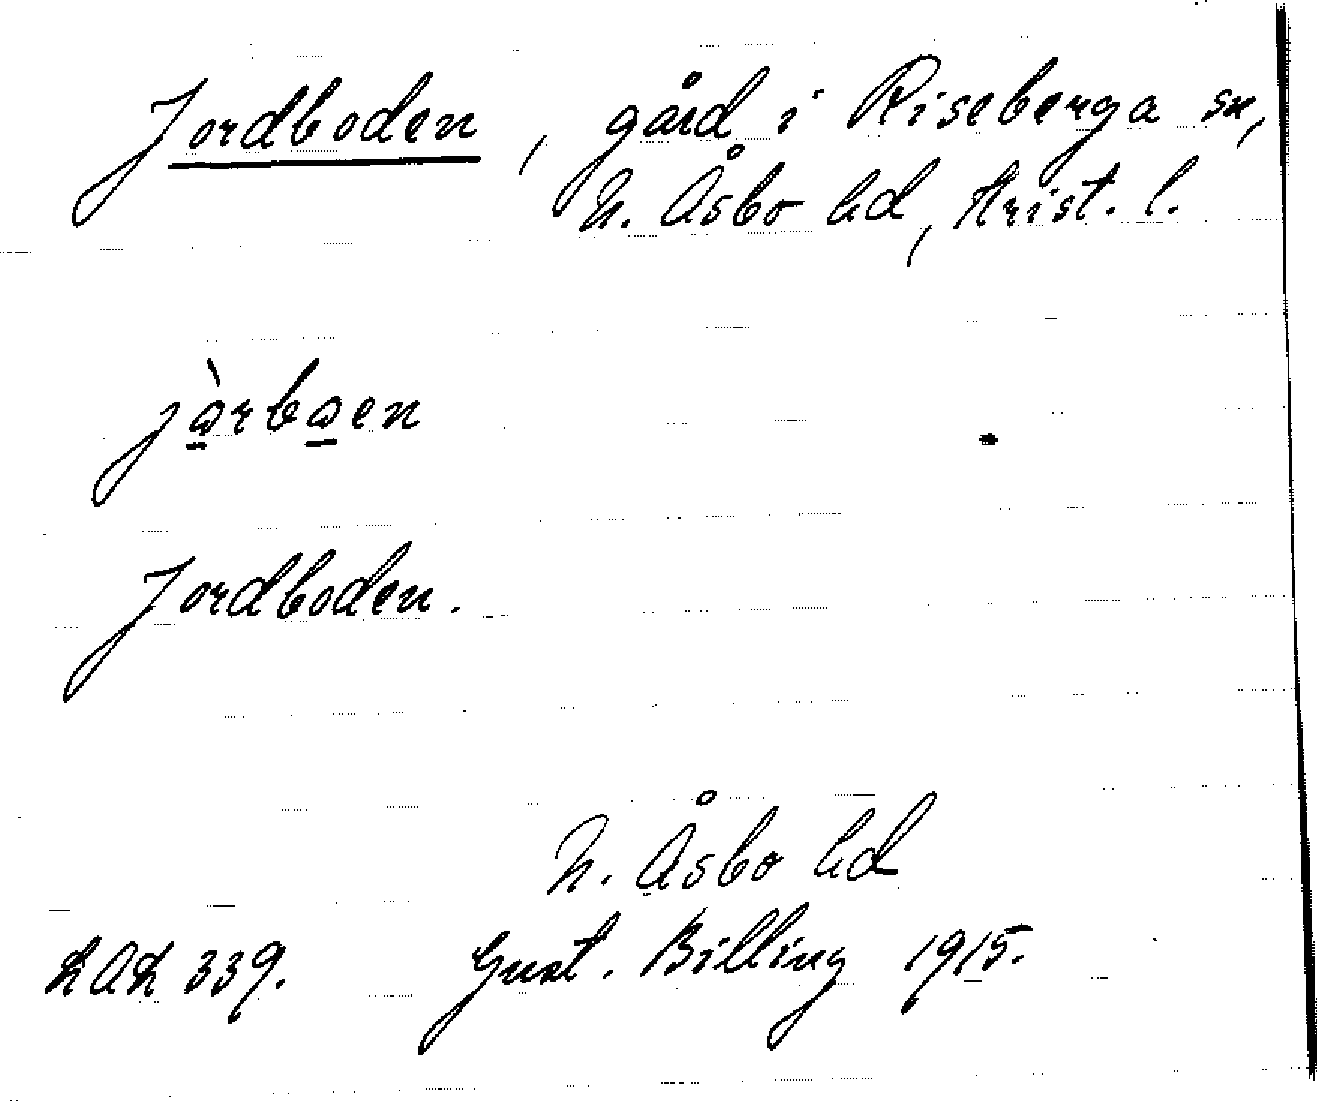 Jordboden, gård i Riseberga sn,
N. Åsbo hd, Krist. l.
jàrbaen
Jordboden.
N. Åsbo hd
LAL 339. Gust. Billing 1915.